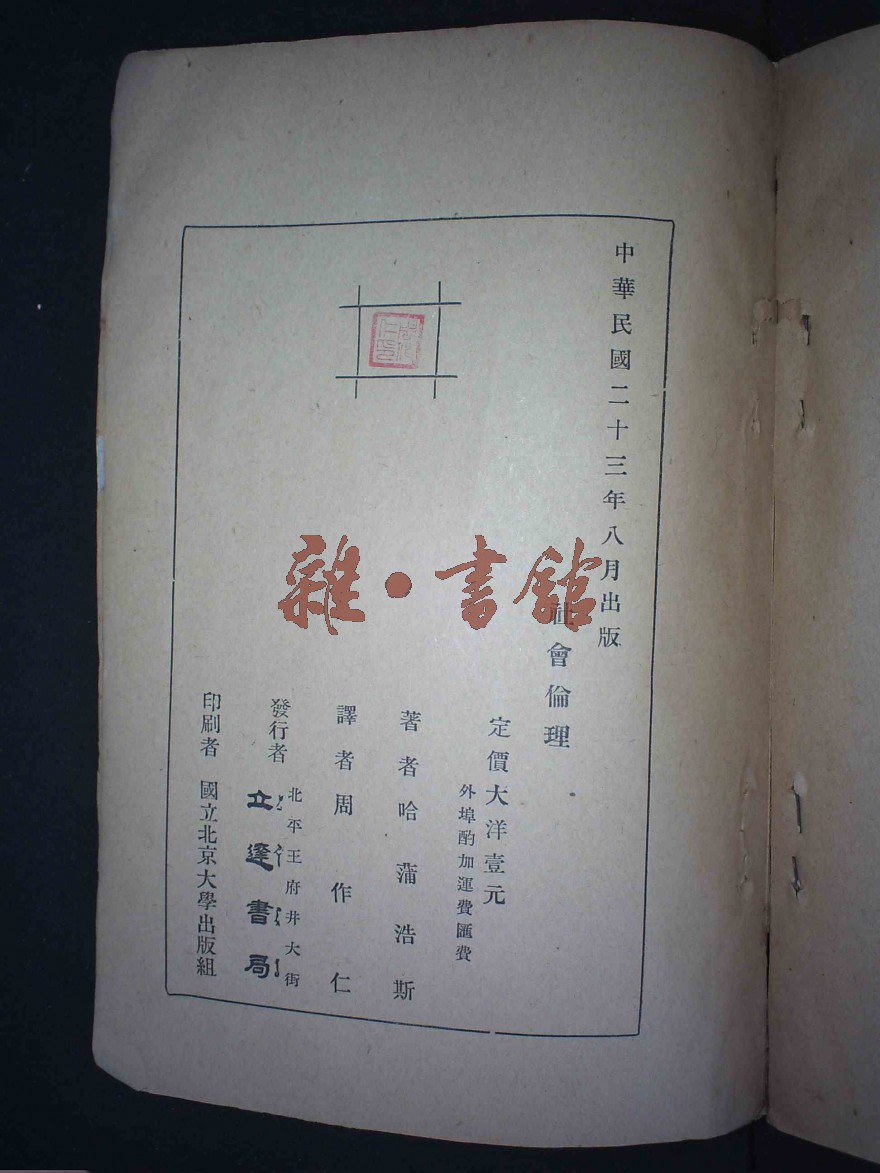 中華民國二十三年八月出版
社會倫理
定價大洋壹元
外埠酌加運費匯費
著者哈蒲浩斯
譯者周作仁
發行者
北平王府井大街
立達書局
印刷者 國立北京大學出版組
雜·書館